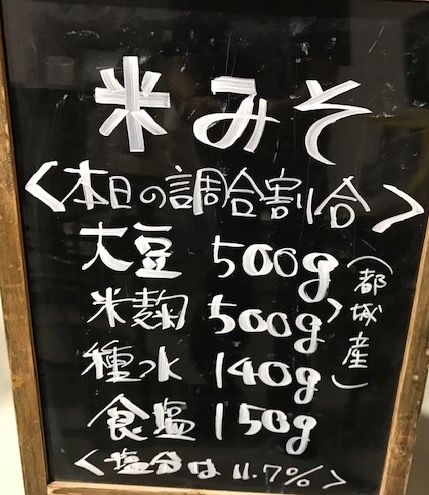 米みそ
〈本日の調合割合〉
大豆 500g
米麹 500g
(都城産)
種水 140g
食塩 150g
〈塩分は11.7%〉